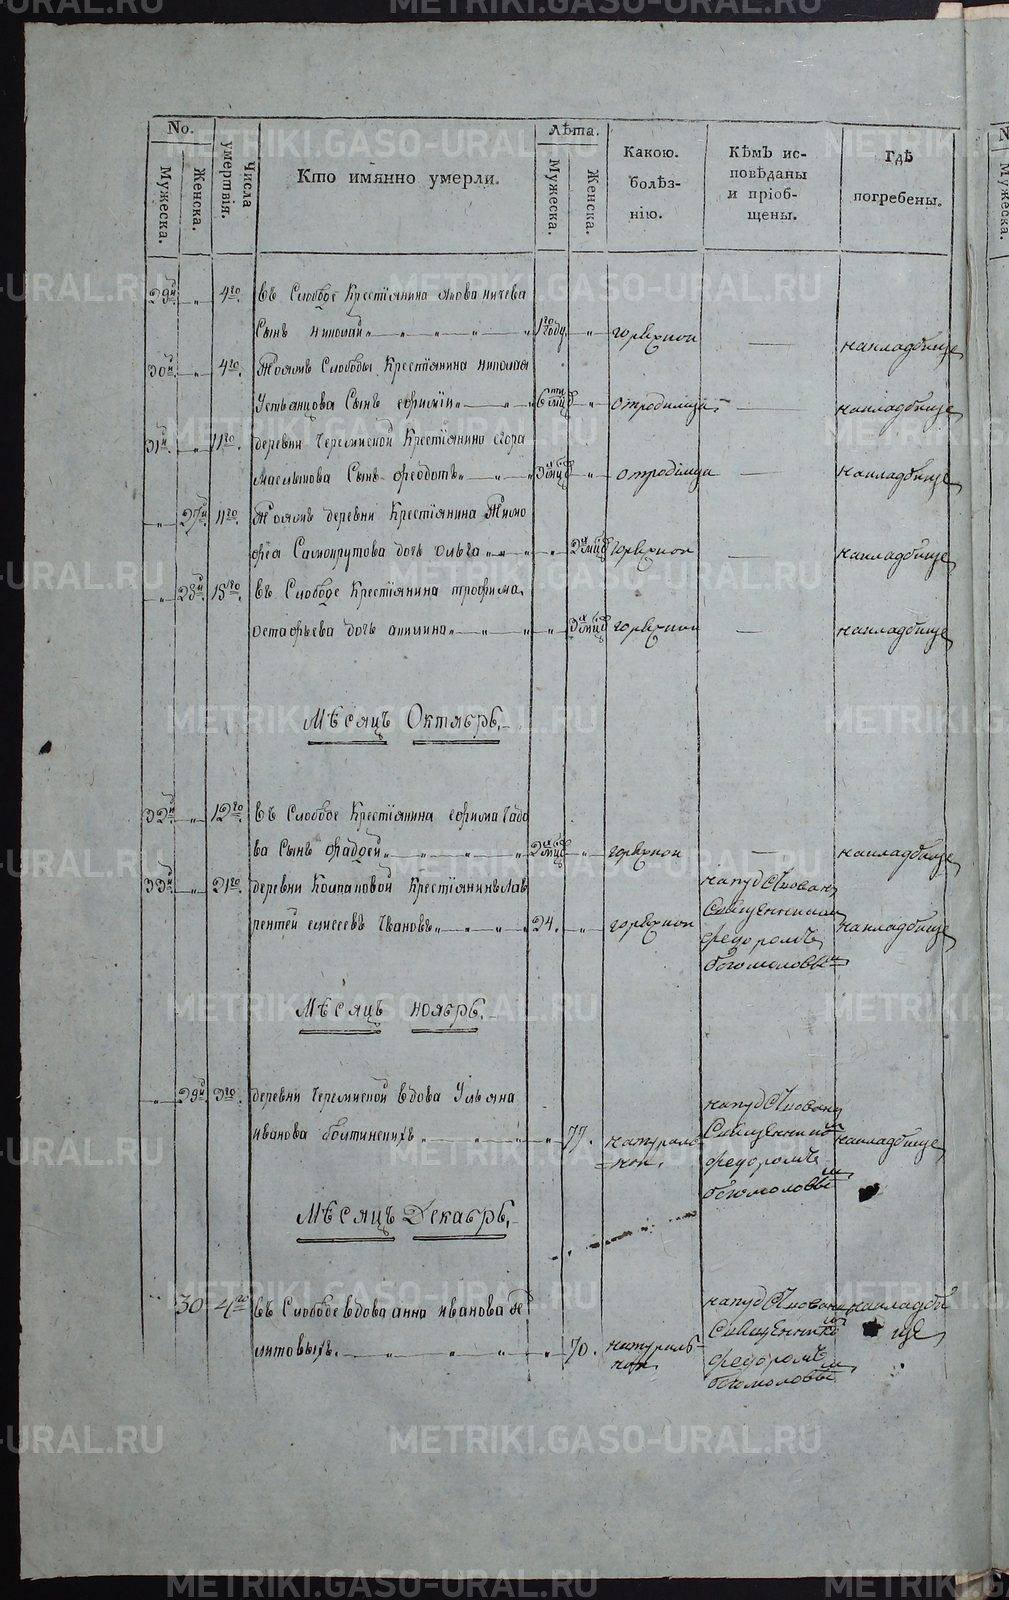 No.
Мужеска.
Женска.
Числа умертвія.
Кто имянно умерли.
Лѣта.
Мужеска.
Женска.
Какою. болѣз- нію.
Кѣмъ ис- повѣданы и пріоб- щены.
Гдѣ погребены.
29й „ 4го въ Слободе Крестіянина якова
Сынъ николай „ „ „ „ 1го году „ горячкой — накладбище
30й „ 4го Тояжъ Слободы Крестіянина николая
Устьянцова Сынъ ефимій „ „ 6ти мцъ „ отродимца — накладбище
31й „ 11го деревни Черемиской Крестіянина егора
Сынъ феодотъ „ „ 3 мцъ „ отродимца — накладбище
„ 27й 11го Тояжъ деревни Крестіянина Тимо
фея Самокрутова дочь ольга „ „ 2 мцъ горячкой — накладбище
„ 28й 15го въ Слободе Крестіянина трофима
остафьева дочь акилина „ „ „ „ 3 мцъ горячкой — накладбище
Мѣсяцъ Октябрь.
32й „ 12го въ Слободе Крестіянина ефима
ва Сынъ фадѣй „ „ „ „ 2 мцъ „ горячкой — накладбище
33й „ 21го деревни Колпаковой Крестіянинъ Лав
рентей елисеевъ Ивановъ „ „ „ 24. „ горячкой
Священникомъ
федоромъ
богомоловымъ
накладбище
Мѣсяцъ ноябрь.
„ 29й 3го деревни Черемиской вдова Ульяна
иванова „ „ „ „ 77. натураль
ной.
Священникомъ
федоромъ
богомоловымъ
накладбище
Мѣсяцъ Декабрь.
30 4го въ Слободе вдова анна иванова
„ „ „ „ 70. натураль
ной
Священником
федоромъ
богомоловымъ
накладби
ще
METRIKI.GASO-URAL.RU